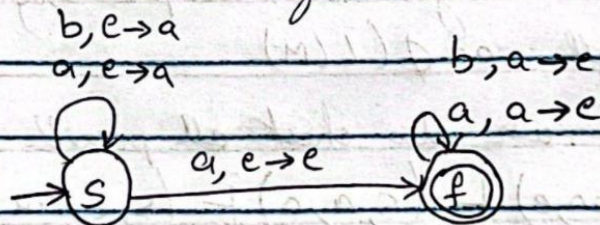 b, e→a
a, e→a
b, a→e
a, a→e
a, e→e
s
f